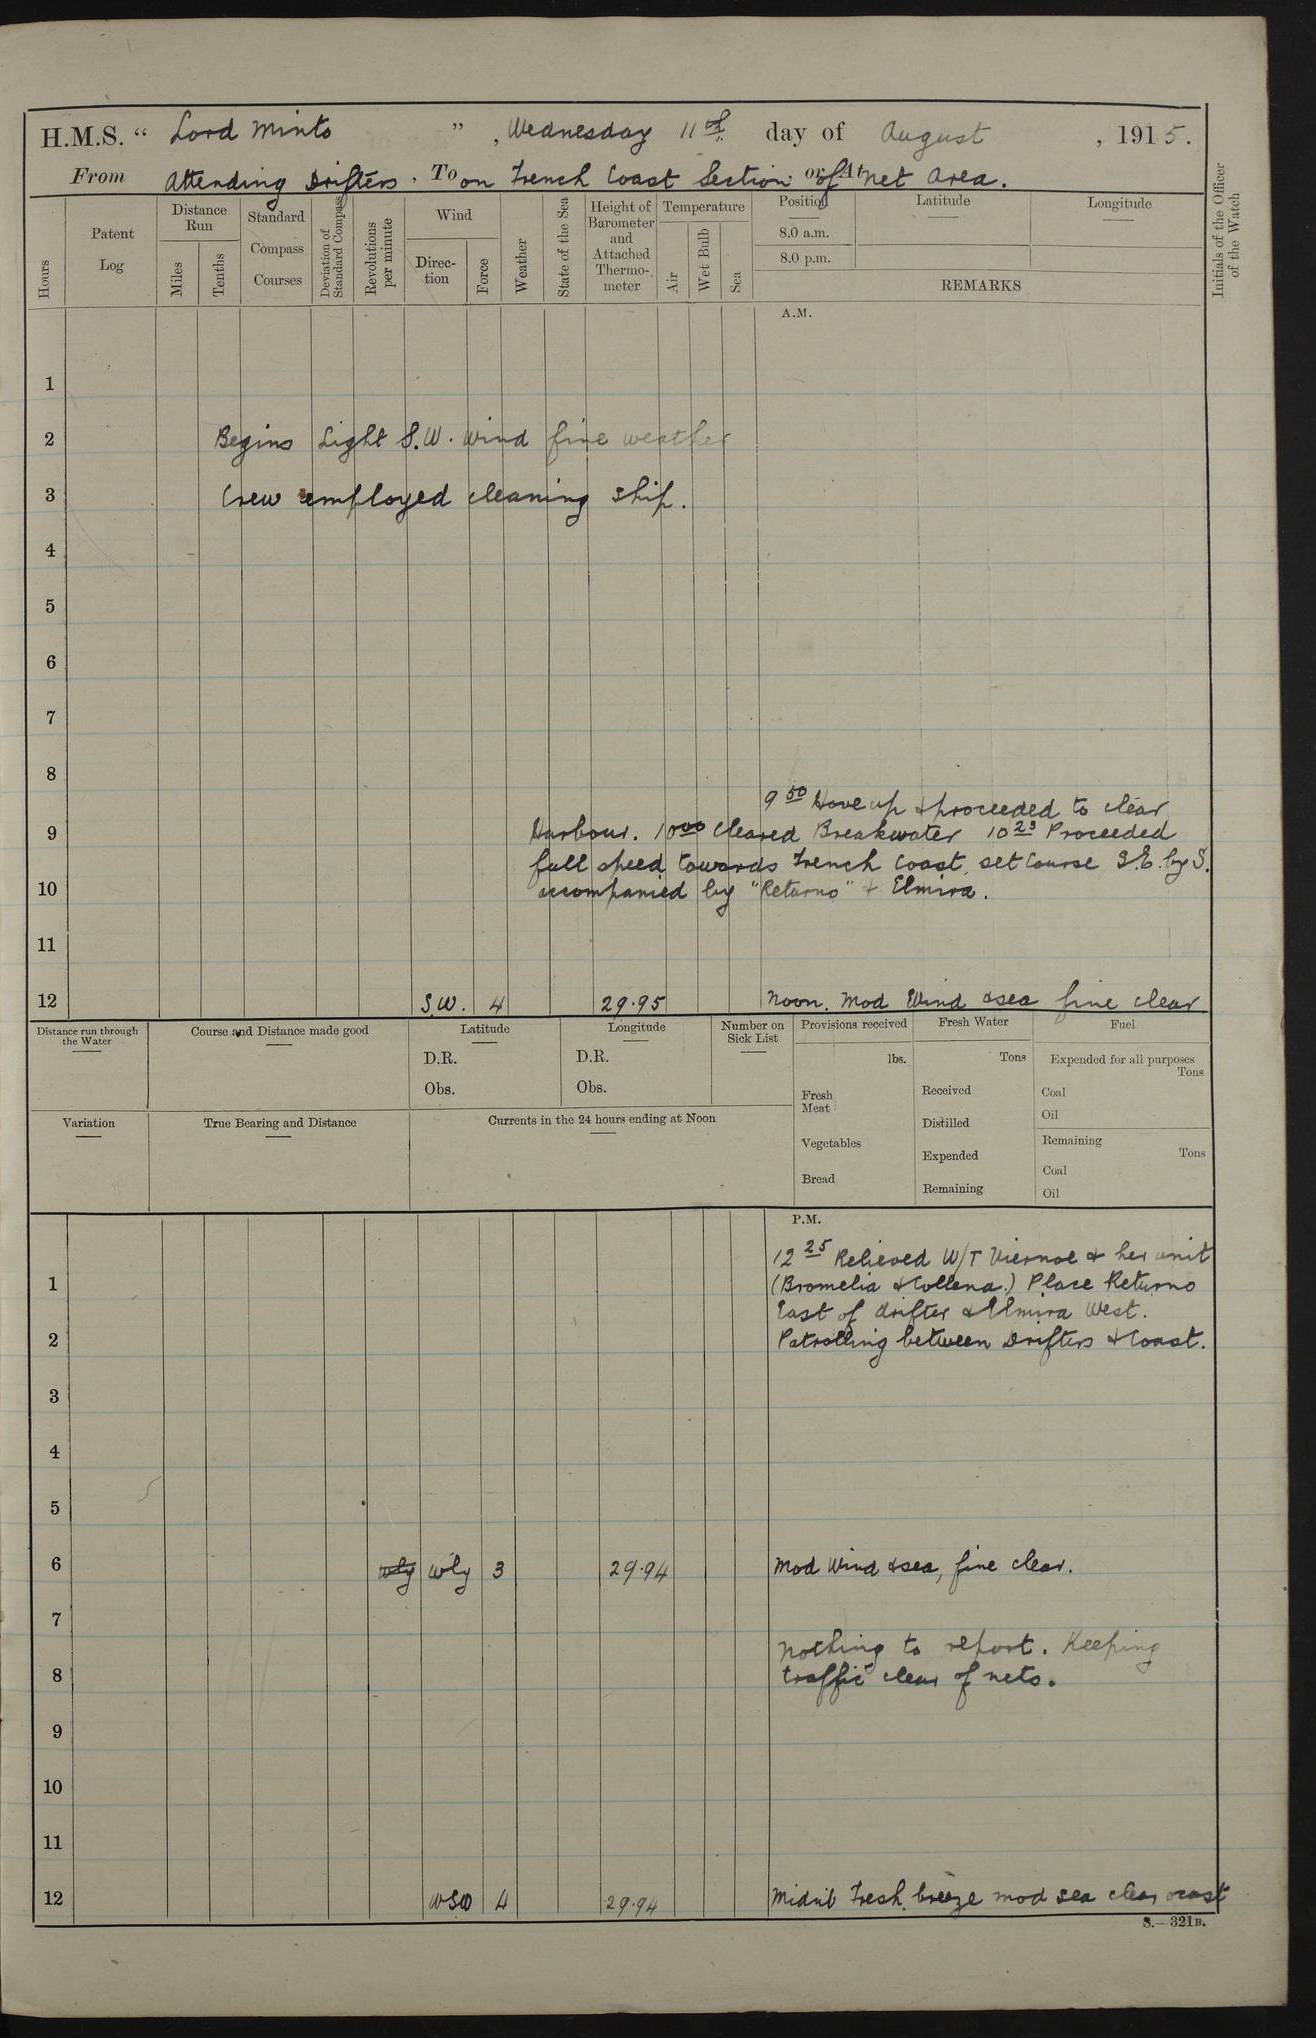 H.M.S. “ Lord Minto ”, Wednesday 11th day of August, 1915.
From Attending Drifters. To on French Coast Section or At of net area.
Hours
Patent Log
Distance Run
Miles
Tenths
Standard Compass Courses
Deviation of Standard Compass
Revolutions per minute
Wind
Direction
Force
Weather
State of the Sea
Height of Barometer and Attached Thermometer
Temperature
Air
Wet Bulb
Sea
Position
8.0 a.m.
8.0 p.m.
Latitude
Longitude
REMARKS
Initials of the Officer of the Watch
A.M.
1
2 Begins Light S.W. wind fine weather
3 Crew employed cleaning ship.
4
5
6
7
8
9 50 Hove up & proceeded to clear
9 Harbour. 10 00 Cleared Breakwater 10 23 Proceeded
full speed towards French Coast, set course S.E. by S.
10 accompanied by "Returno" & Elmira.
11
12 S.W. 4 29.95 Noon. Mod Wind & sea fine clear
Distance run through the Water
Course and Distance made good
Latitude
D.R.
Obs.
Longitude
D.R.
Obs.
Number on Sick List
Provisions received
lbs.
Fresh Meat
Vegetables
Bread
Fresh Water
Tons
Received
Distilled
Expended
Remaining
Fuel
Expended for all purposes
Tons
Coal
Oil
Remaining
Tons
Coal
Oil
Variation
True Bearing and Distance
Currents in the 24 hours ending at Noon
P.M.
12 25 Relieved W/T Viernoe & her unit
1 (Bromelia & Collena.) Place Returno
East of drifter & Elmira West.
2 Patrolling between Drifters & Coast.
3
4
5
6 wly wly 3 29.94 Mod Wind & sea, fine clear.
7
Nothing to report. Keeping
8 traffic clear of nets.
9
10
11
12 WSW 4 29.94 Midnt Fresh breeze mod sea clear ocast
S.—321B.